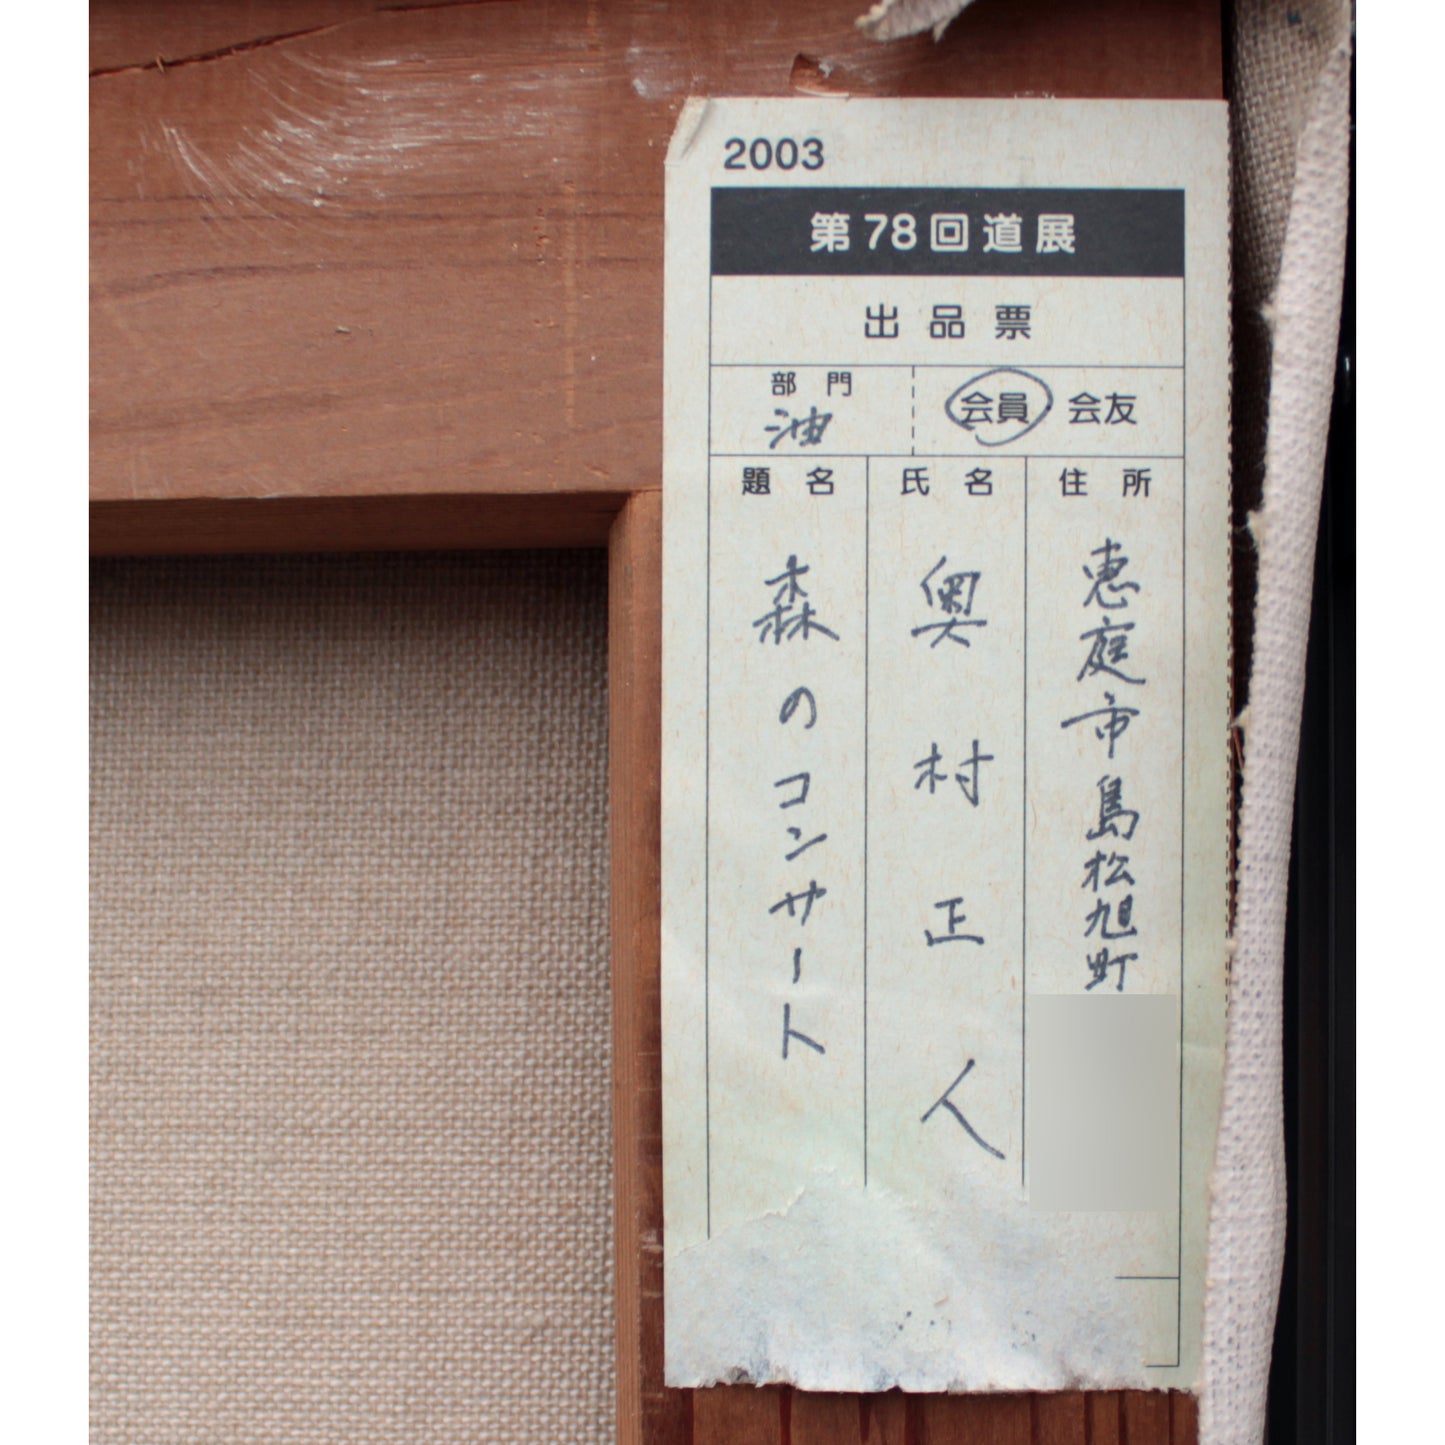 2003
第78回道展
出品票
部門
油
会員 会友
題名
森のコンサート
氏名
奥村正人
住所
恵庭市島松旭町